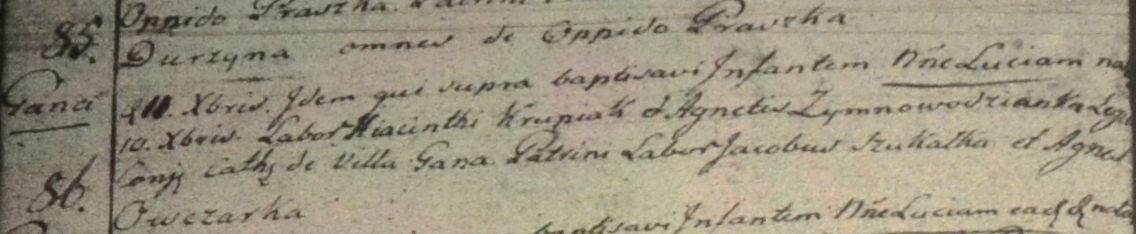 Oppido Praszka. Patrini
85. Durzyna omnes de Oppido Praszka
Ganæ 11. Xbris. Idem qui supra baptisavi Infantem Nñe Luciam na
10. Xbris. Labor Hiacinthi Krupiak & Agnetis Zymnowodzianka Legit
Conj: cath: de Villa Gana. Patrini Labor Jacobus Szukalka et Agnes
86. Owczarka
baptisavi Infantem Nñe Luciam ead: d: nata